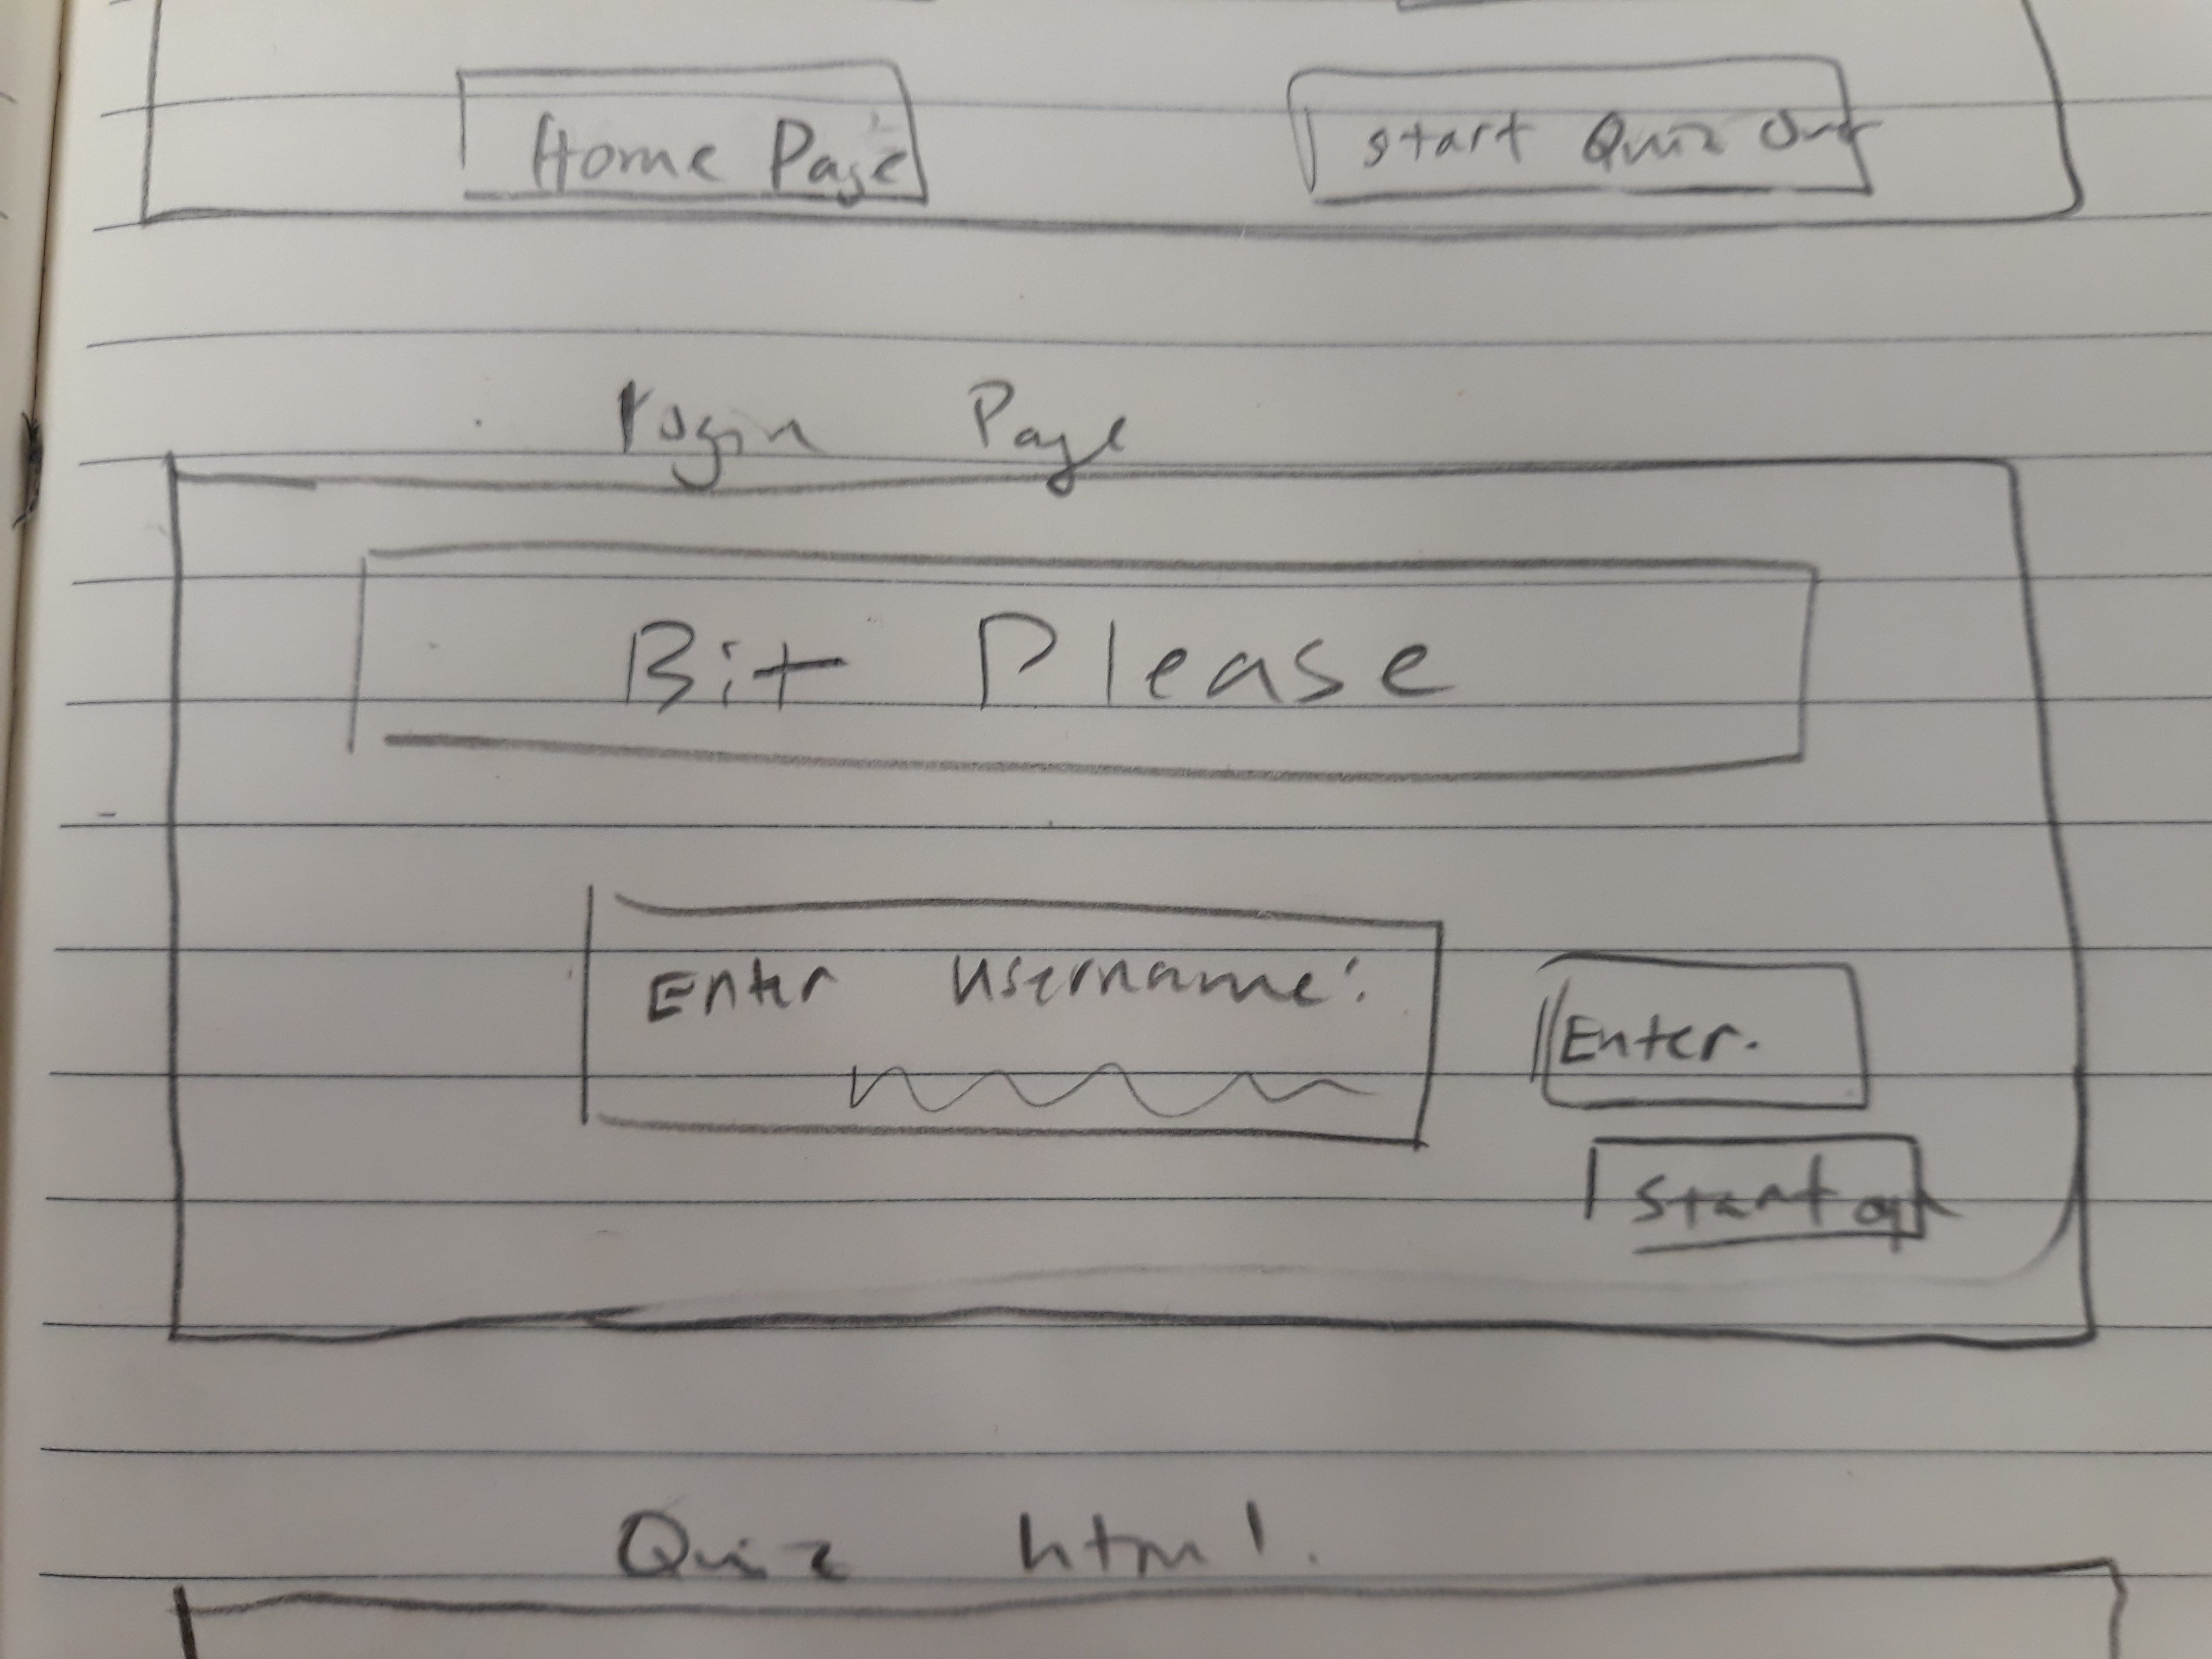 Home Page
Start Quiz
Login Page
Bit Please
Enter username:
Enter.
Start
Quiz html.